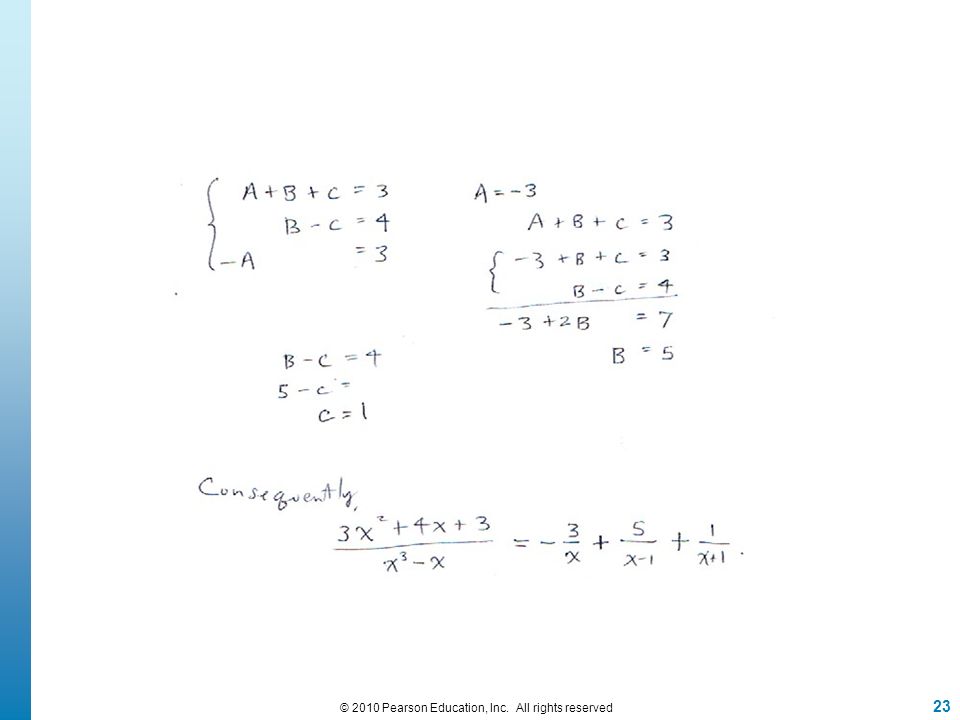 A + B + C = 3
B - C = 4
-A = 3
A = -3
A + B + C = 3
-3 + B + C = 3
B - C = 4
-3 + 2B = 7
B = 5
B - C = 4
5 - C =
C = 1
Consequently,
3x² + 4x + 3 / x³ - x = - 3/x + 5/x-1 + 1/x+1 .
© 2010 Pearson Education, Inc. All rights reserved
23